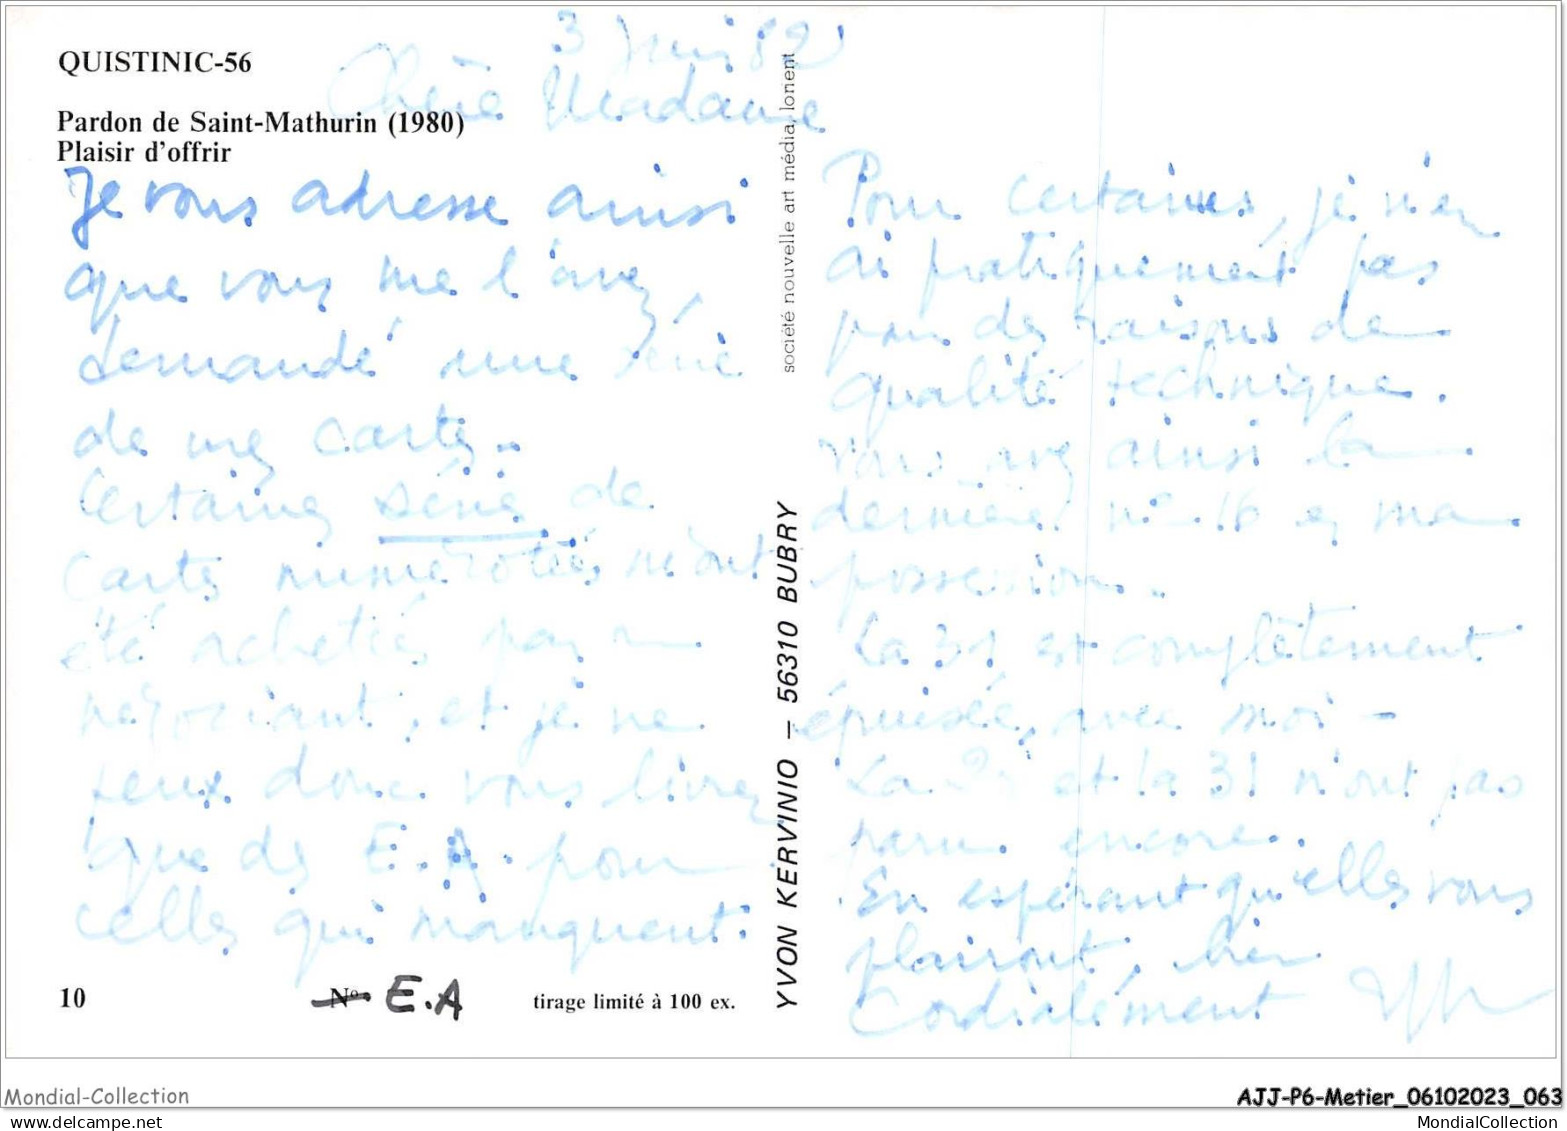 QUISTINIC-56
3 Juin 82
Chère Madame
Pardon de Saint-Mathurin (1980)
Plaisir d'offrir
Je vous adresse ainsi
que vous me l'avez
demandé une série
de mes cartes.
Certaines série de
cartes numérotées n'ont
été achetées par un
négociant, et je ne
peux donc vous livrer
que des E.A. pour
celles qui manquent.
10
N° E.A
tirage limité à 100 ex.
société nouvelle art média, lorient
YVON KERVINIO – 56310 BUBRY
Pour certaines, je n'en
ai pratiquement pas
pour des raisons de
qualité technique.
Vous avez ainsi la
dernière n° 16 en ma
possession.
La 31 est complètement
épuisée, avec moi -
La et la 31 n'ont pas
paru encore.
En espérant qu'elles vous
plairont, bien
Cordialement
Mondial-Collection
AJJ-P6-Metier_06102023_063
MondialCollection